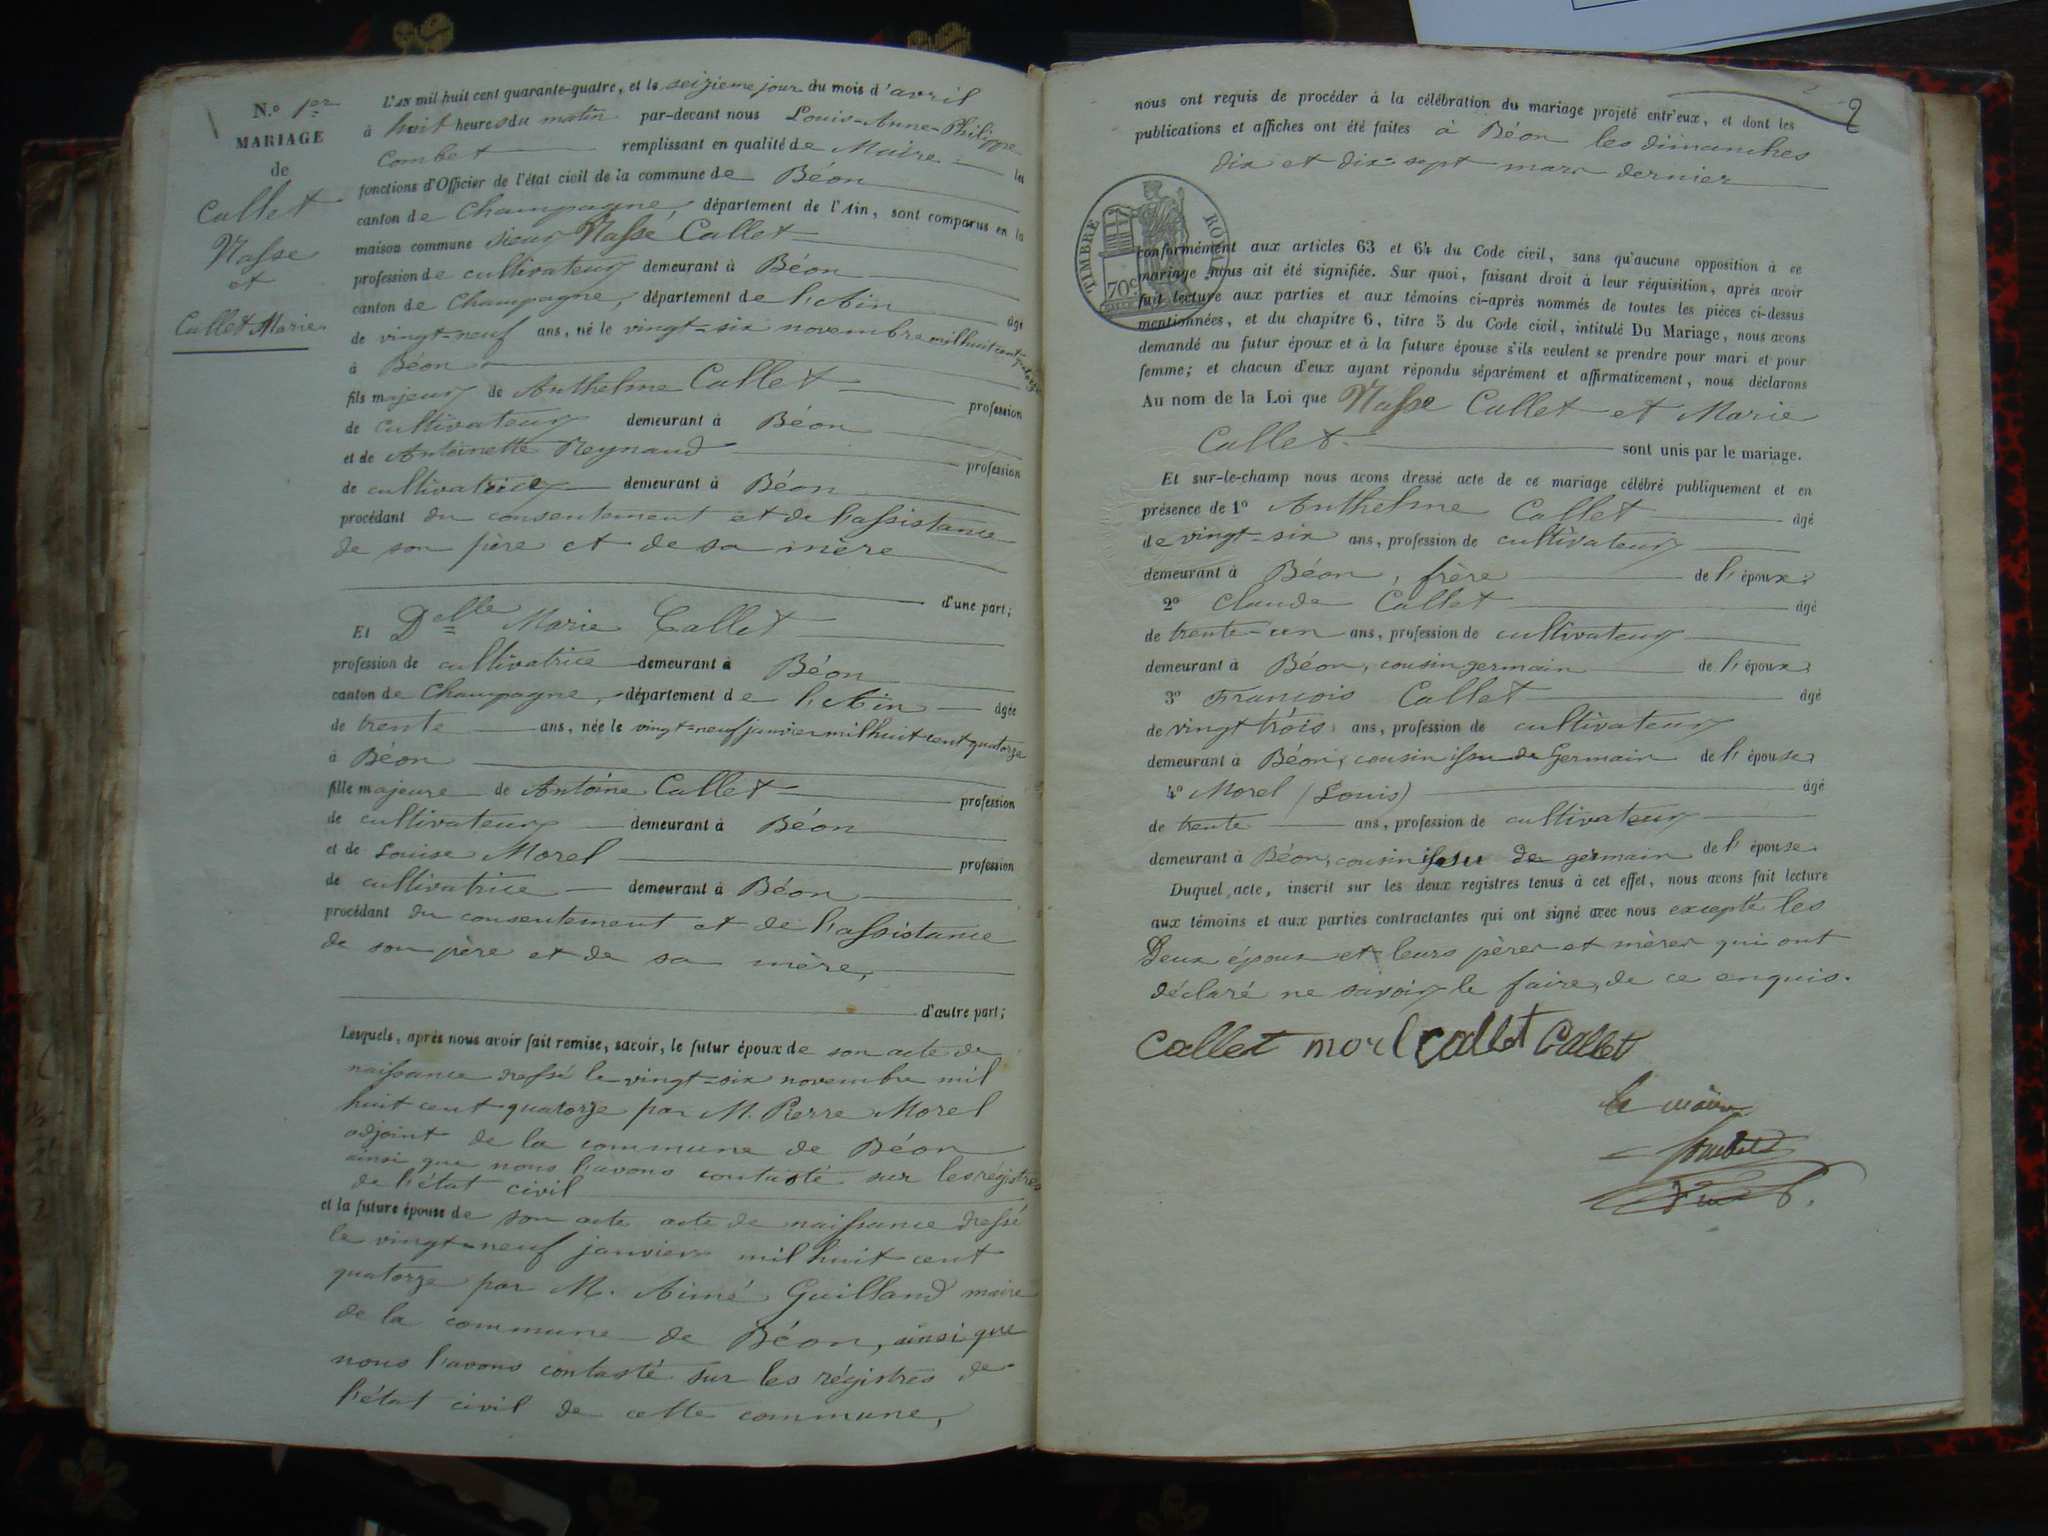 N.o 1er
MARIAGE
de
Callet
Nasse
et
Callet Marie
L'an mil huit cent quarante-quatre, et le seizieme jour du mois d'avril
à huit heures du matin par-devant nous Louis-Anne-Philippe
Combet remplissant en qualité de Maire les
fonctions d'Officier de l'état civil de la commune de Béon
canton de Champagne, département de l'Ain, sont comparus en la
maison commune sieur Nasse Callet
profession de cultivateur demeurant à Béon
canton de Champagne, département de l'Ain âgé
de vingt-neuf ans, né le vingt-six novembre mil huit cent quatorze
à Béon
fils majeur de Anthelme Callet profession
de cultivateur demeurant à Béon
et de Antoinette Reynaud profession
de cultivatrice demeurant à Béon
procédant du consentement et de l'assistance
de son père et de sa mère
d'une part;
Et Delle Marie Callet
profession de cultivatrice demeurant à Béon
canton de Champagne, département de l'Ain âgée
de trente ans, née le vingt-neuf janvier mil huit cent quatorze
à Béon
fille majeure de Antoine Callet profession
de cultivateur demeurant à Béon
et de Louise Morel profession
de cultivatrice demeurant à Béon
procédant du consentement et de l'assistance
de son père et de sa mère,
d'autre part;
Lesquels, après nous avoir fait remise, savoir, le futur époux de son acte de
naissance dressé le vingt-six novembre mil
huit cent quatorze par M. Pierre Morel
adjoint de la commune de Béon
ainsi que nous l'avons contasté sur les régistres
de l'état civil
et la future épouse de son acte acte de naissance dressé
le vingt-neuf janvier mil huit cent
quatorze par M. Aimé Guilland maire
de la commune de Béon, ainsi que
nous l'avons contasté sur les régistres de
l'état civil de cette commune,
2
nous ont requis de procéder à la célébration du mariage projeté entr'eux, et dont les
publications et affiches ont été faites à Béon les dimanches
dix et dix-sept mars dernier
TIMBRE ROYAL
70c
conformément aux articles 63 et 64 du Code civil, sans qu'aucune opposition à ce
mariage nous ait été signifiée. Sur quoi, faisant droit à leur réquisition, après avoir
fait lecture aux parties et aux témoins ci-après nommés de toutes les pièces ci-dessus
mentionnées, et du chapitre 6, titre 5 du Code civil, intitulé Du Mariage, nous avons
demandé au futur époux et à la future épouse s'ils veulent se prendre pour mari et pour
femme; et chacun d'eux ayant répondu séparément et affirmativement, nous déclarons
Au nom de la Loi que Nasse Callet et Marie
Callet sont unis par le mariage.
Et sur-le-champ nous avons dressé acte de ce mariage célébré publiquement et en
présence de 1o Anthelme Callet âgé
de vingt-six ans, profession de cultivateur
demeurant à Béon, frère de l'époux;
2o Claude Callet âgé
de trente-un ans, profession de cultivateur
demeurant à Béon, cousin germain de l'époux;
3o François Callet âgé
de vingt trois ans, profession de cultivateur
demeurant à Béon, cousin issu de Germain de l'épouse;
4o Morel (Louis) âgé
de trente ans, profession de cultivateur
demeurant à Béon, cousin issu de germain de l'épouse.
Duquel acte, inscrit sur les deux registres tenus à cet effet, nous avons fait lecture
aux témoins et aux parties contractantes qui ont signé avec nous excepté les
Deux époux et leurs pères et mères qui ont
déclaré ne savoir le faire, de ce enquis.
Callet morel Callet Callet
le maire
Combet